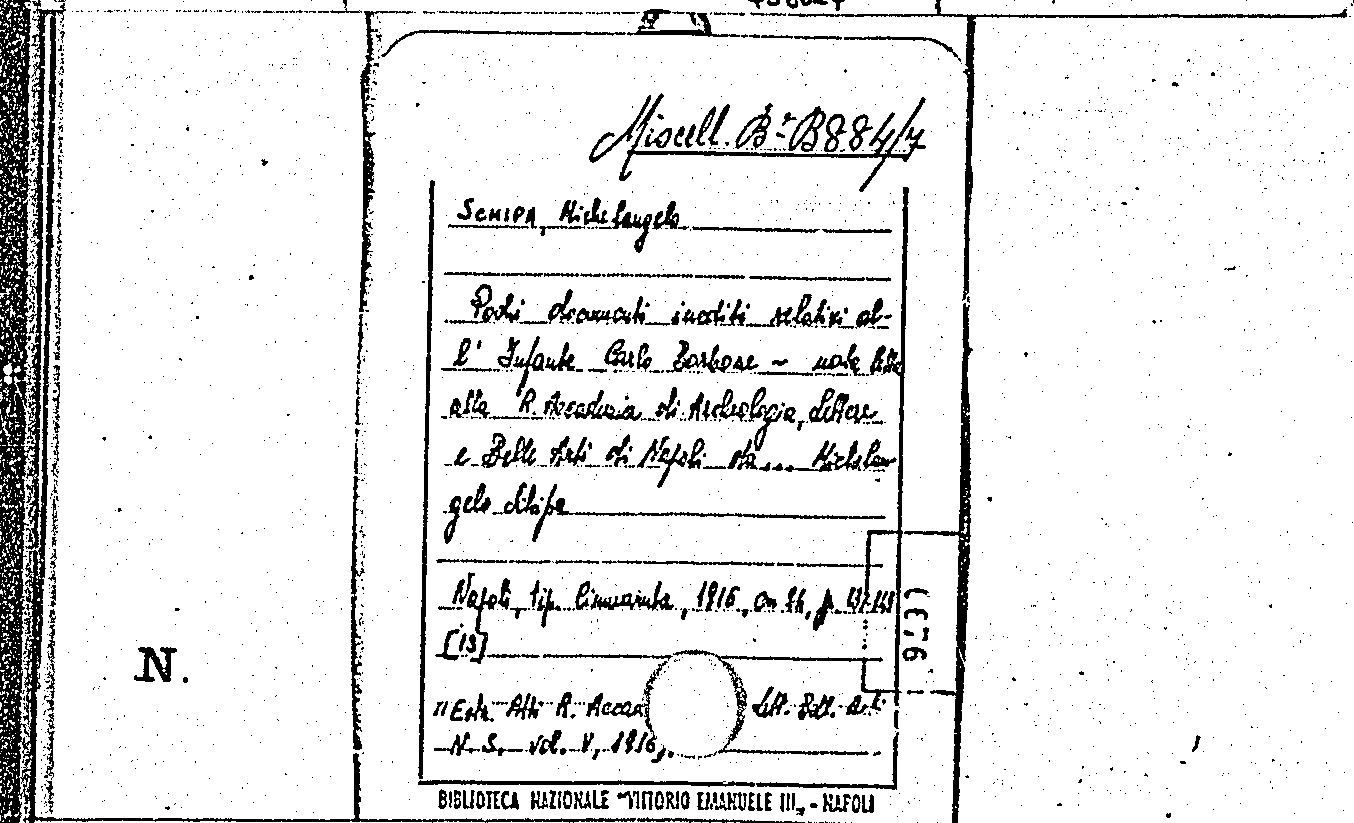 Miscell. Bª B884/7
SCHIPA, Michelangelo
Pochi documenti inediti relativi al-
l' Infante Carlo Borbone - nota letta
alla R. Accademia di Archeologia, Lettere
e Belle Arti di Napoli da... Michelan
gelo Schipa
Napoli, tip. Cimmaruta, 1916, cm 26, p.
[13]
Estr. Atti R. Accad Lett. Bell. Arti
N. S. vol. V, 1916,
N.
BIBLIOTECA NAZIONALE "VITTORIO EMANUELE III„ - NAPOLI